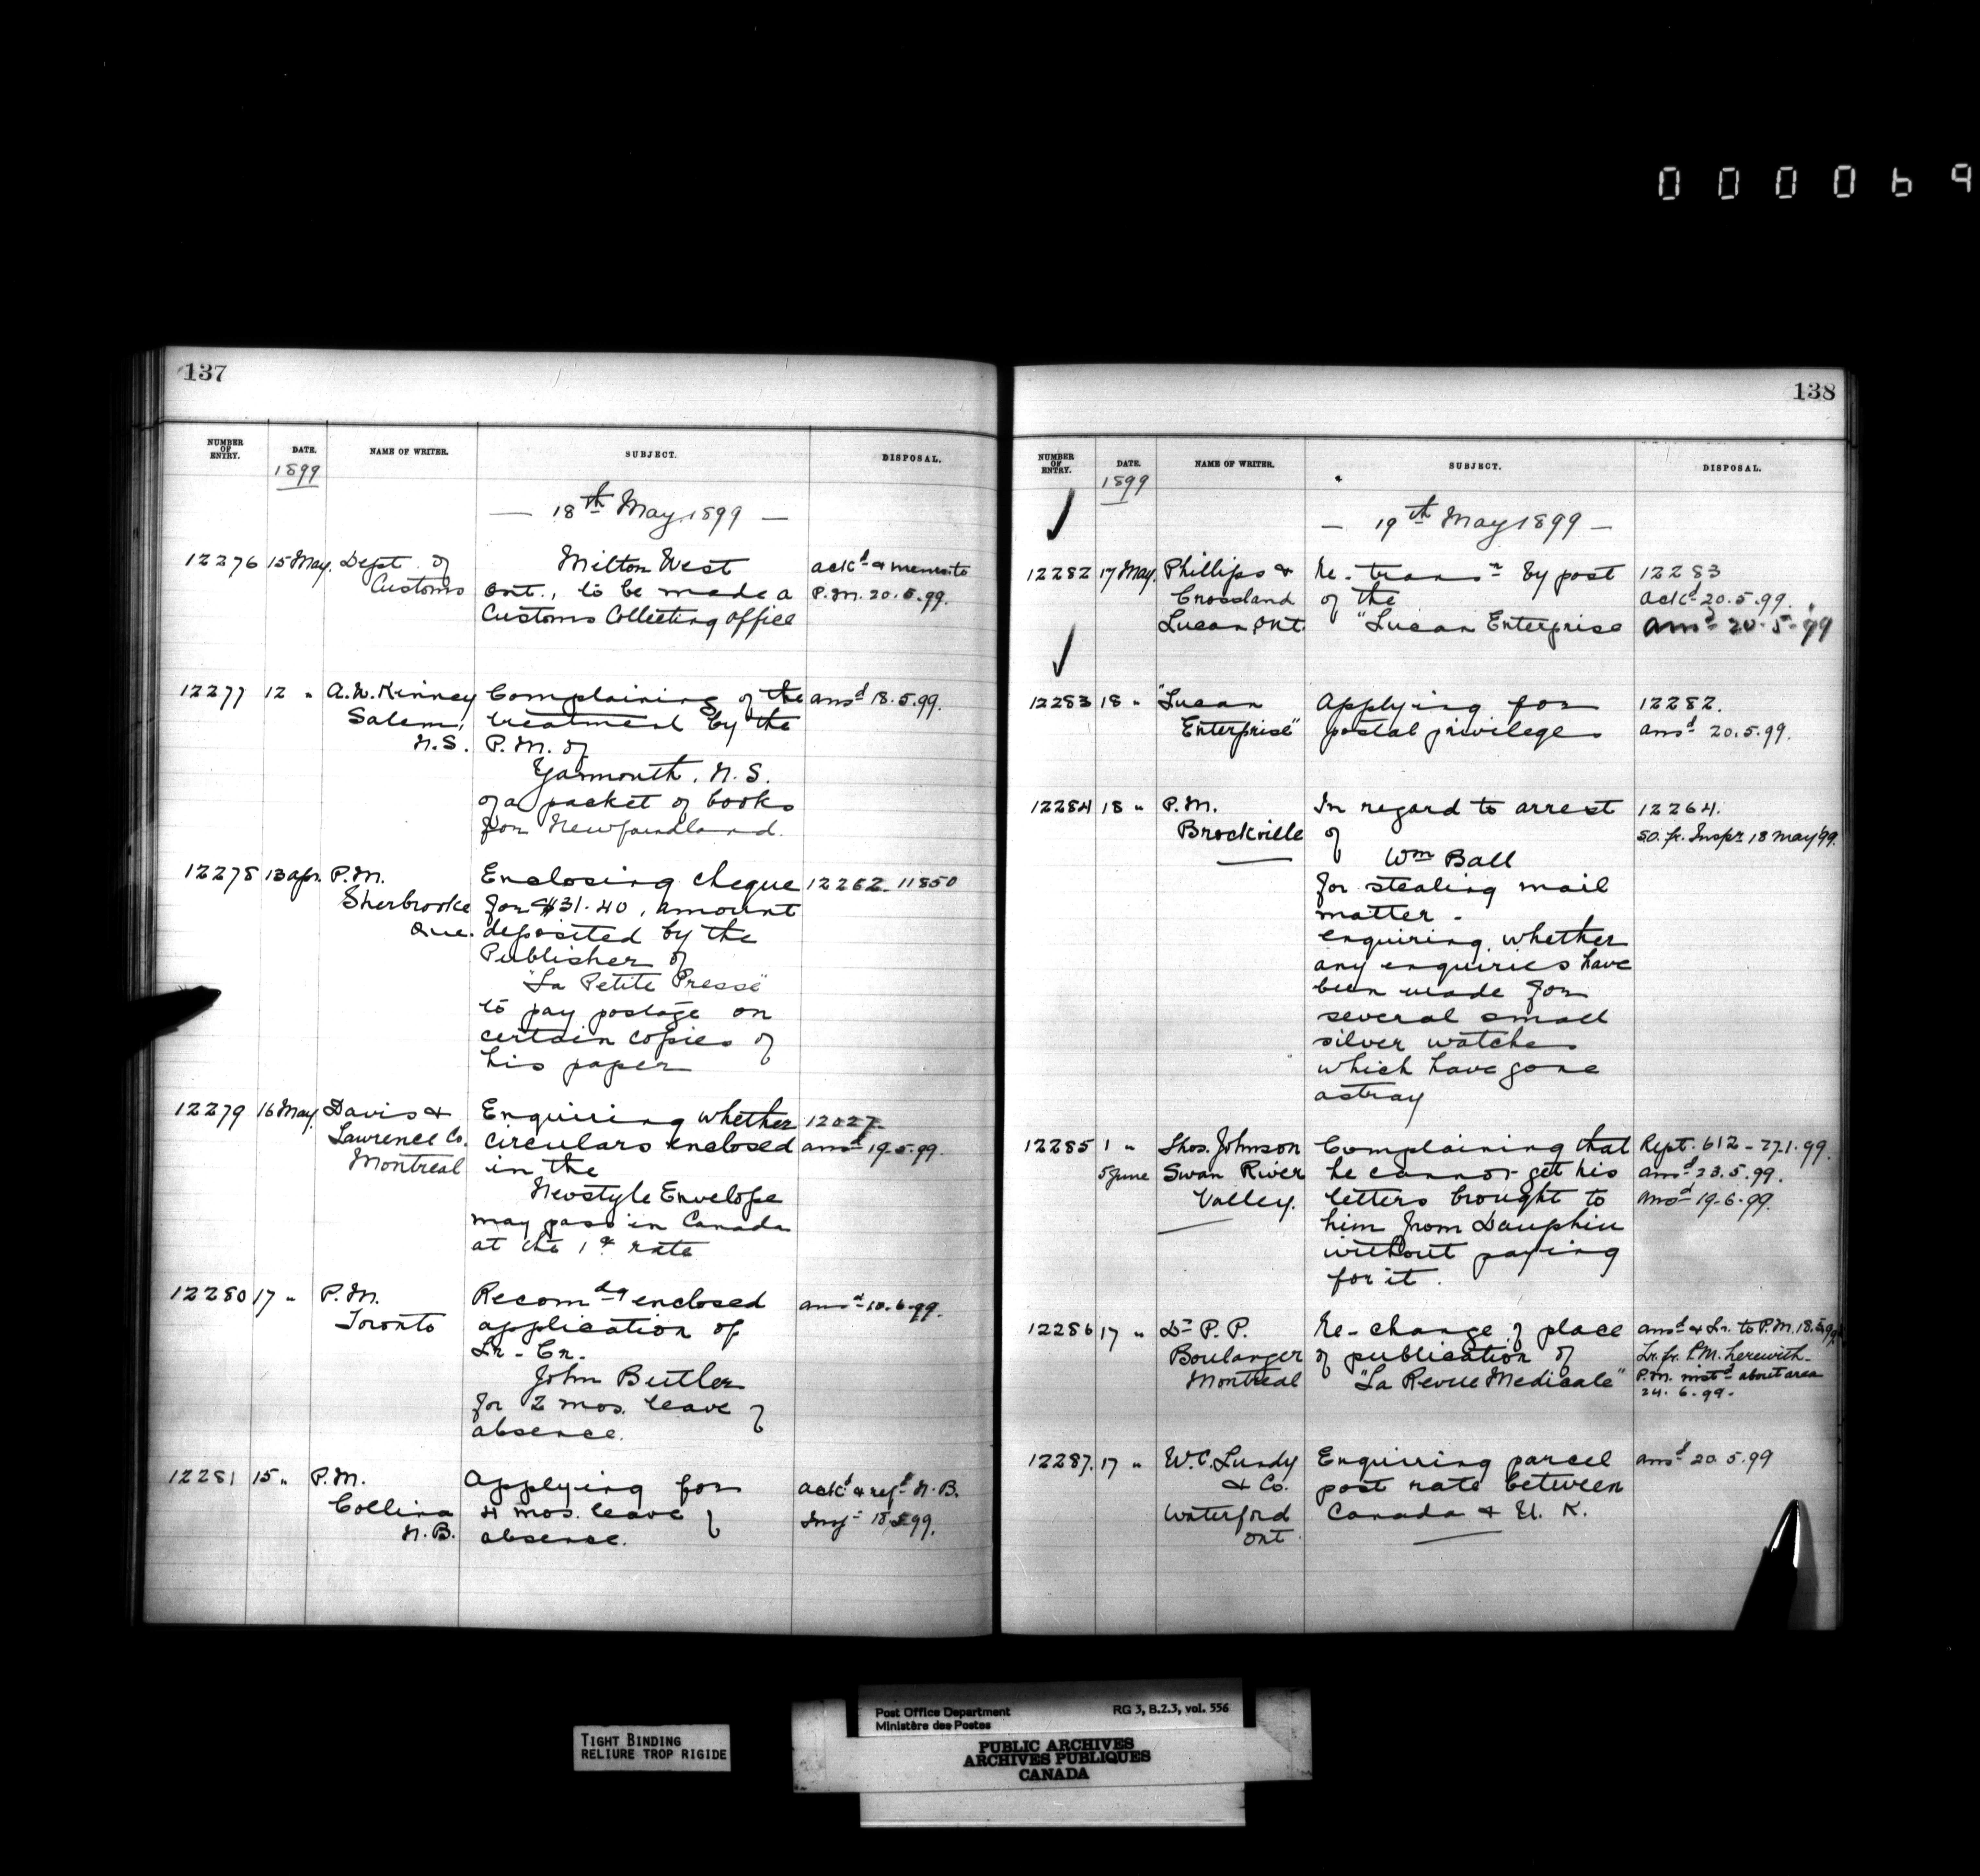 000069
137
NUMBER OF ENTRY. DATE. NAME OF WRITER. SUBJECT. DISPOSAL.
1899
— 18th May 1899 —
12276 15 May. Dept. of Milton West ackd & memo to
Customs Ont., to be made a P.M. 20.5.99.
Customs Collecting Office
12277 12 " A. W. Kinney Complaining of the ansd 18.5.99.
Salem, treatment by the
N.S. P.M. of
Yarmouth, N.S.
of a packet of books
from Newfoundland.
12278 13 apr. P.M. Enclosing cheque 12262 - 11850
Sherbrooke for $31.40, amount
Que. deposited by the
Publisher of
"La Petite Presse"
to pay postage on
certain copies of
his paper
12279 16 May. Davis & Enquiring whether 12027-
Lawrence Co. circulars enclosed ansd 19.5.99.
Montreal in the
Newstyle Envelope
may pass in Canada
at the 1¢ rate
12280 17 " P.M. Recomdg enclosed ansd 10.6.99.
Toronto application of
Lr - Cr.
John Butler
for 2 mos. leave of
absence.
12281 15 " P.M. Applying for ackd & refd N.B.
Collina 4 mos. leave of Insp 18.5.99.
N.B. absence.
138
NUMBER OF ENTRY. DATE. NAME OF WRITER. SUBJECT. DISPOSAL.
1899
— 19th May 1899 —
12282 17 May. Phillips & Re - transn by post 12283
Crossland of the ackd 20.5.99.
Lucan Ont. "Lucan Enterprise ansd 20.5.99
12283 18 " "Lucan Applying for 12282.
Enterprise" postal privileges ansd 20.5.99.
12284 18 " P.M. In regard to arrest 12264.
Brockville of so. fr. Inspr 18 May 99.
Wm Ball
for stealing mail
matter -
enquiring whether
any enquiries have
been made for
several small
silver watches
which have gone
astray
12285 1 " Thos. Johnson Complaining that Rept. 612 - 27.1.99.
5 June Swan River he cannot get his ansd 23.5.99.
Valley. letters brought to ansd 19.6.99.
him from Dauphin
without paying
for it.
12286 17 " Dr P. P. Re - change of place ansd & Lr. to P.M. 18.5.99
Boulanger of publication of Lr. fr. P.M. herewith -
Montreal "La Revue Medicale" P.M. instd about area
24.6.99.
12287. 17 " W. C. Lundy Enquiring parcel ansd 20.5.99
& Co. post rate between
Waterford Canada & U. K.
Ont.
Post Office Department RG 3, B.2.3, vol. 556
Ministère des Postes
PUBLIC ARCHIVES
ARCHIVES PUBLIQUES
CANADA
TIGHT BINDING
RELIURE TROP RIGIDE